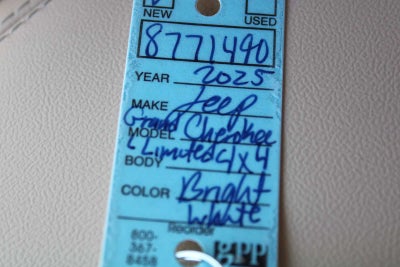 NEW USED
8771490
YEAR 2025
MAKE Jeep
MODEL Grand Cherokee
BODY Limited 4x4
COLOR Bright
White
Reorder
800-
367-
8458
gpp